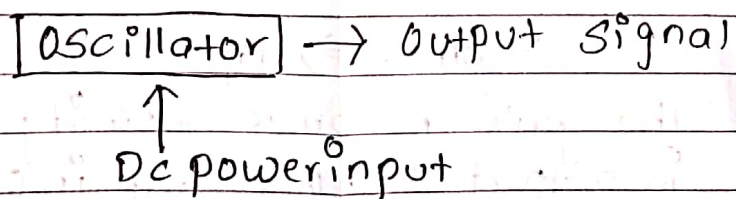 Oscillator → Output Signal
Dc power input